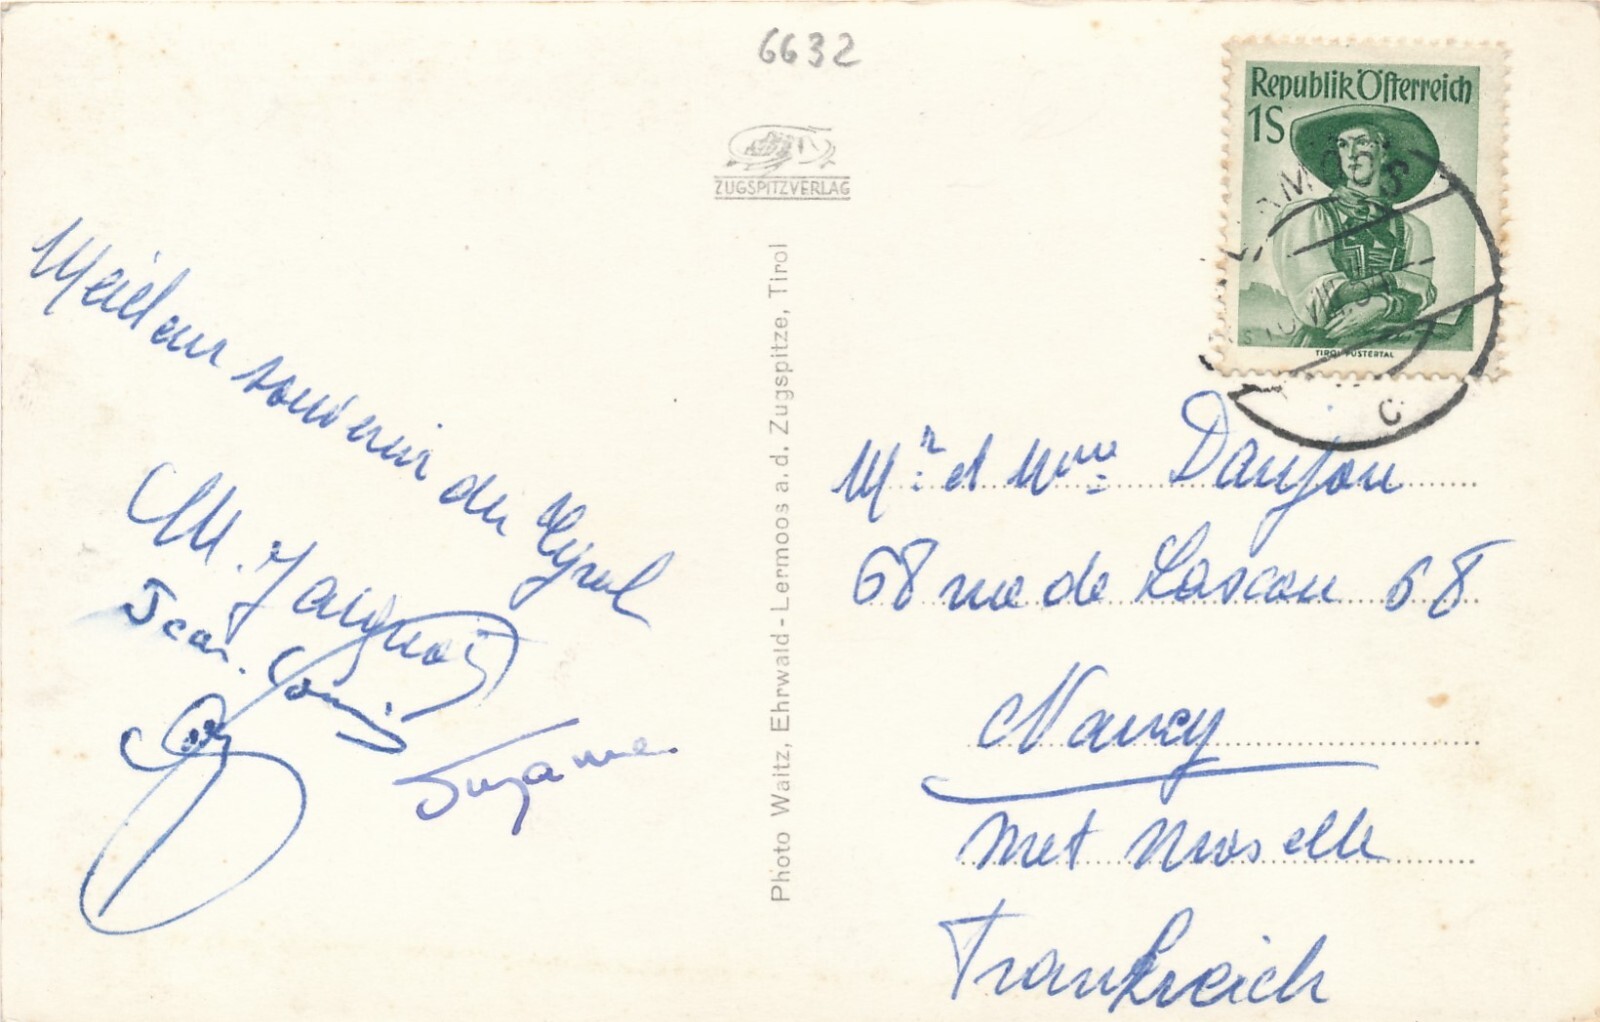 6632
ZUGSPITZVERLAG
Republik Österreich
1S
TIROL PUSTERTAL
C
Meilleur souvenir du Tyrol
M.
Jean
Suzanne
Photo Waitz, Ehrwald - Lermoos a. d. Zugspitze, Tirol
Mr. et Mme Danjou
68 rue de Lascou 68
Nancy
Met Moselle
Frankreich